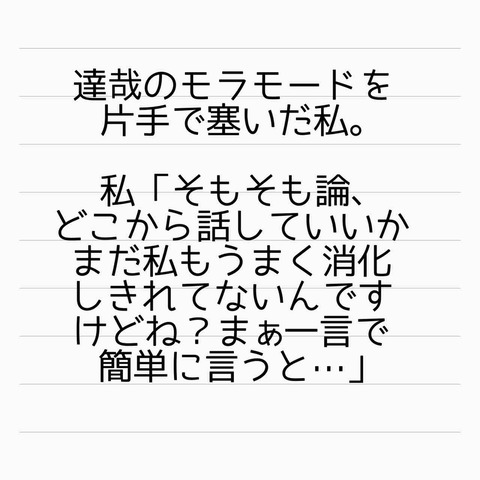 達哉のモラモードを
片手で塞いだ私。
私「そもそも論、
どこから話していいか
まだ私もうまく消化
しきれてないんです
けどね？まぁ一言で
簡単に言うと…」